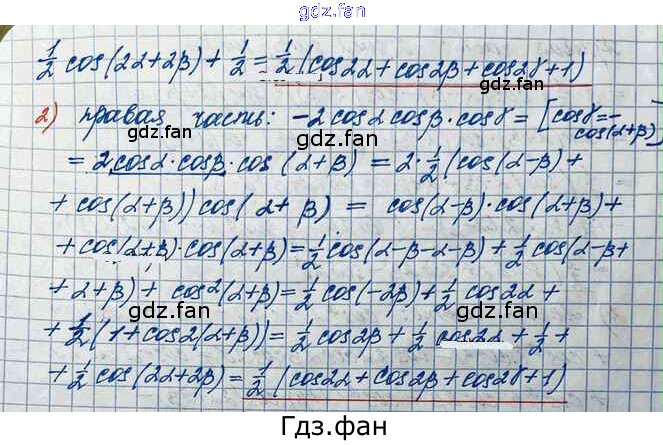 gdz.fan
1/2 cos(2α+2β)+ 1/2 = 1/2 (cos2α+cos2β+cos2γ+1)
gdz.fan
2) правая часть: -2cosα cosβ·cosγ= [cosγ=-cos(α+β)]
gdz.fan gdz.fan
= 2cosα·cosβ·cos(α+β) = 2·1/2(cos(α-β)+
+ cos(α+β))cos(α+β) = cos(α-β)·cos(α+β)+
gdz.fan
+ cos(α+β)·cos(α+β)=1/2cos(α-β-α-β)+1/2cos(α-β+
gdz.fan
+ α+β)+ cos²(α+β)=1/2cos(-2β)+1/2cos2α+
gdz.fan
+ 1/2(1+cos2(α+β))= 1/2cos2β+1/2cos2α+1/2+
gdz.fan
+ 1/2cos(2α+2β)= 1/2(cos2α+cos2β+cos2γ+1)
gdz.fan
Гдз.фан